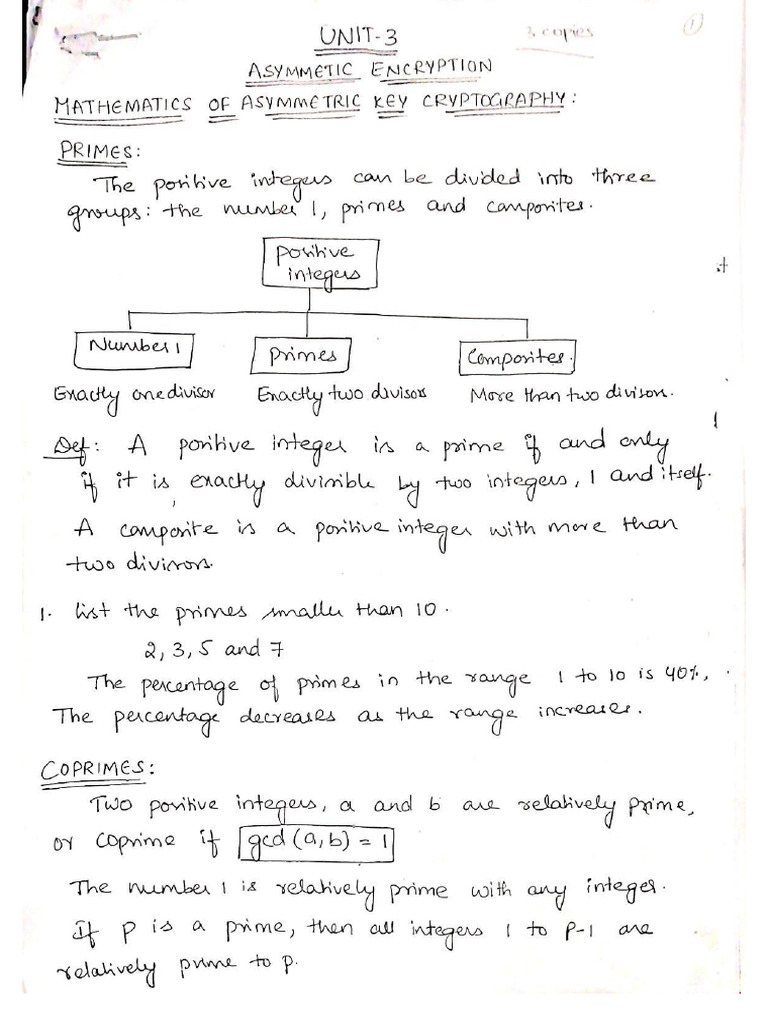 UNIT-3
3 copies
1
ASYMMETIC ENCRYPTION
MATHEMATICS OF ASYMMETRIC KEY CRYPTOGRAPHY:
PRIMES:
The positive integers can be divided into three
groups: the number 1, primes and composites.
Positive
integers
Number 1
Primes
Composites.
Exactly one divisor
Exactly two divisors
More than two divisors.
Def: A positive integer is a prime if and only
if it is exactly divisible by two integers, 1 and itself.
A composite is a positive integer with more than
two divisors.
1. List the primes smaller than 10.
2, 3, 5 and 7
The percentage of primes in the range 1 to 10 is 40%,
The percentage decreases as the range increases.
COPRIMES:
Two positive integers, a and b are relatively prime,
or coprime if gcd(a,b) = 1
The number 1 is relatively prime with any integer.
If P is a prime, then all integers 1 to P-1 are
relatively prime to P.